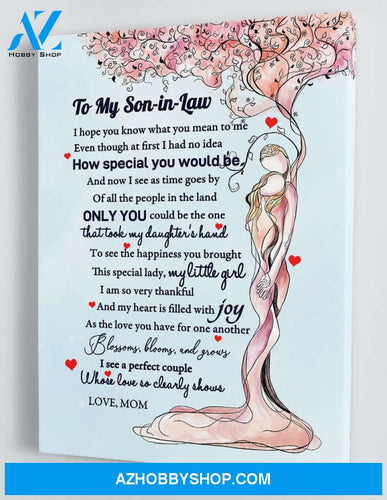 AZ
HOBBY SHOP
To My Son-in-Law
I hope you know what you mean to me
Even though at first I had no idea
How special you would be.
And now I see as time goes by
Of all the people in the land
ONLY YOU could be the one
that took my daughter's hand
To see the happiness you brought
This special lady, my little girl
I am so very thankful
And my heart is filled with joy
As the love you have for one another
Blossoms, blooms, and grows
I see a perfect couple
Whose love so clearly shows
LOVE, MOM
AZHOBBYSHOP.COM